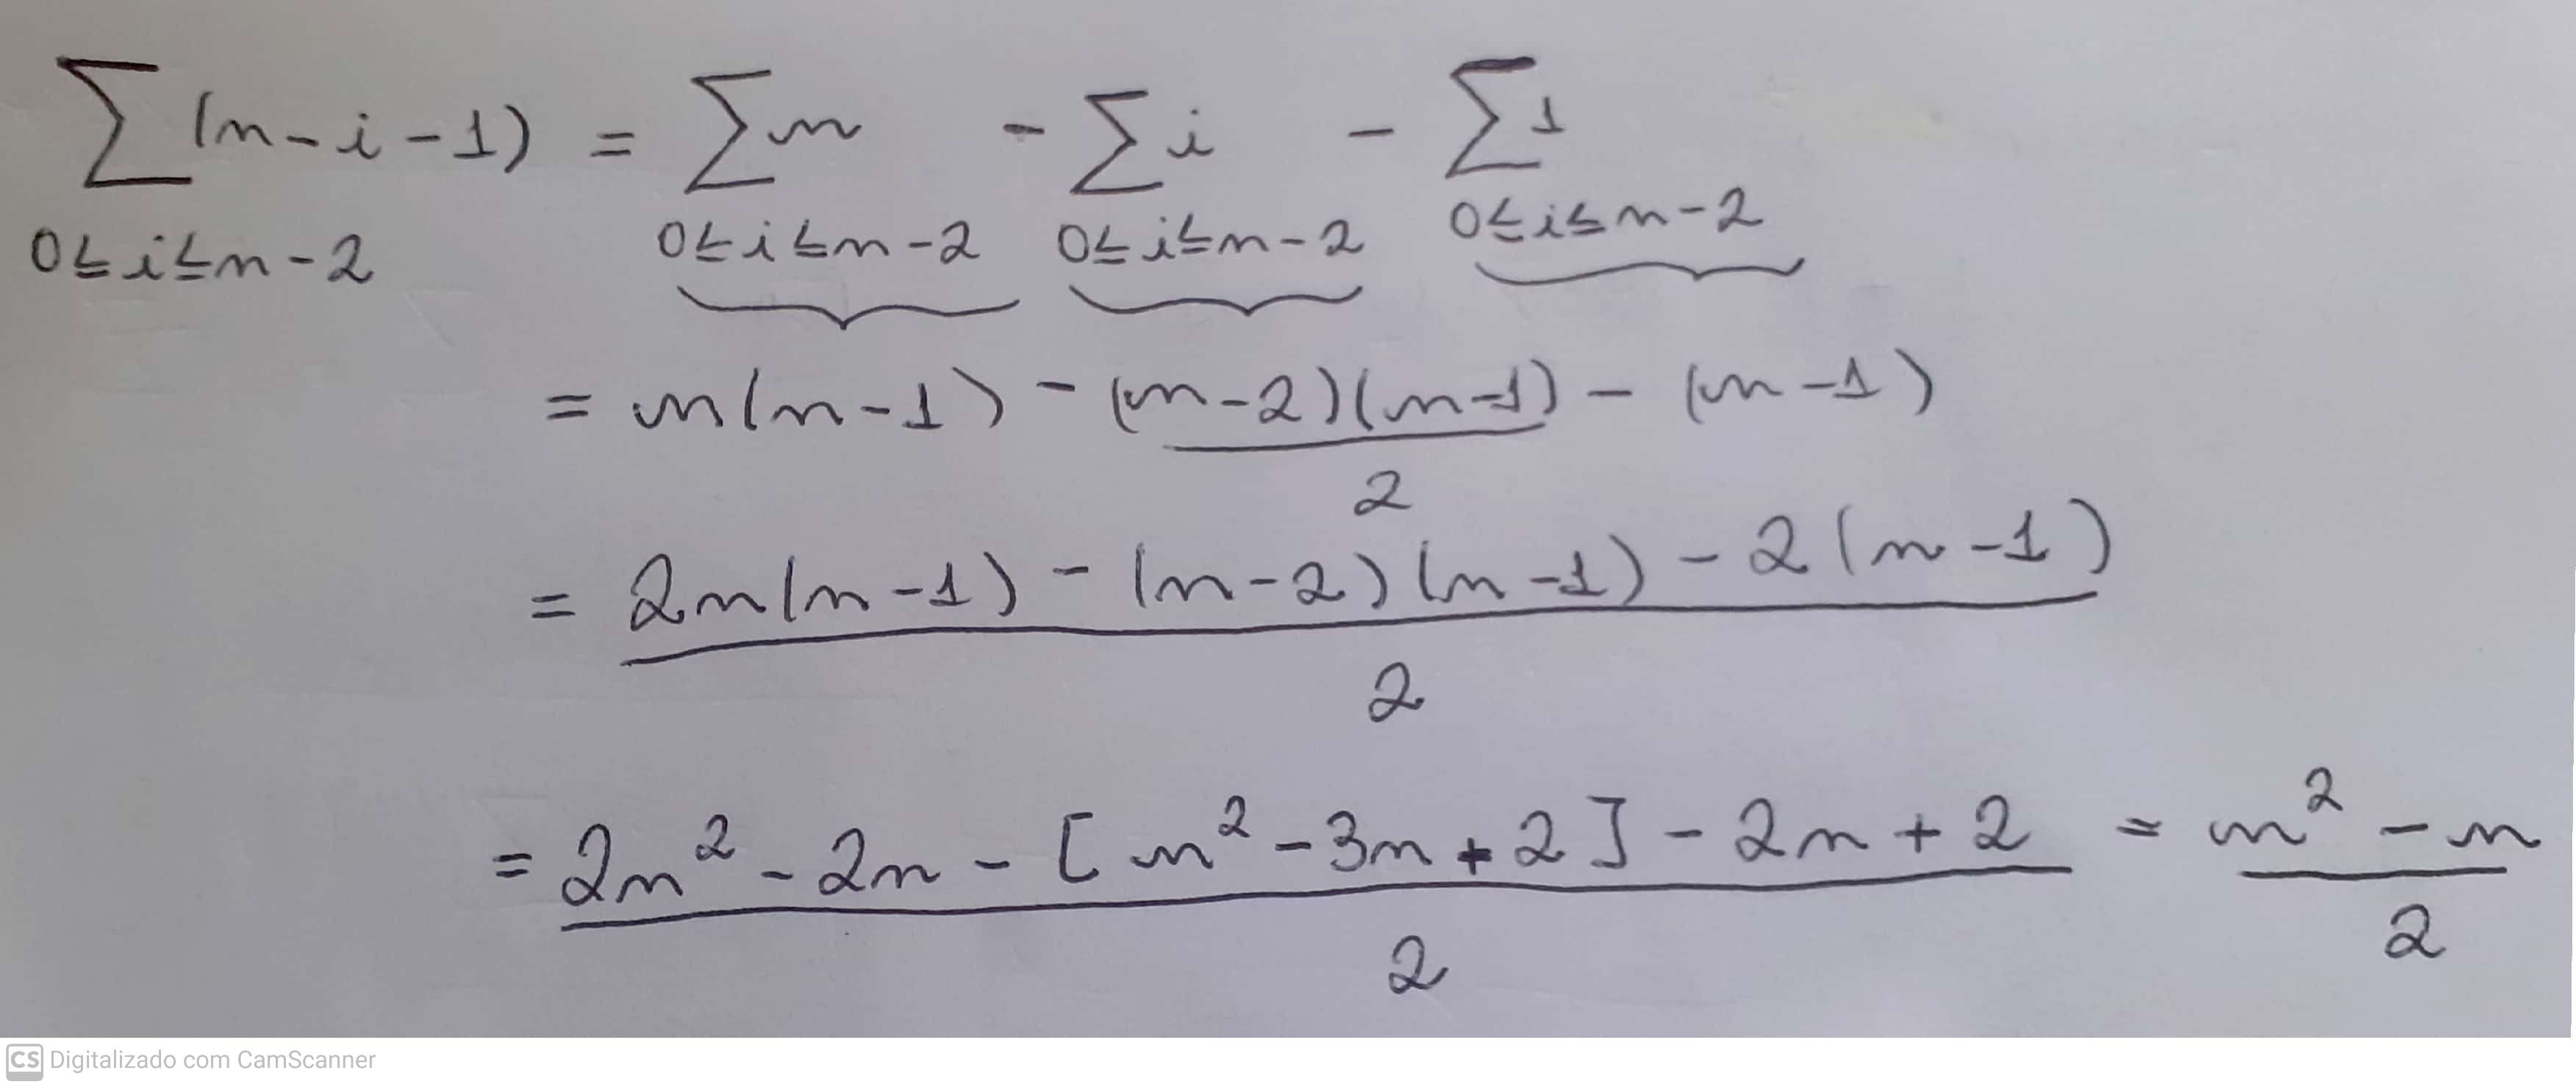 ∑(n-i-1) = ∑n - ∑i - ∑1
0≤i≤n-2 0≤i≤n-2 0≤i≤n-2 0≤i≤n-2
= n(n-1) - (n-2)(n-1) - (n-1)
2
= 2n(n-1) - (n-2)(n-1) - 2(n-1)
2
= 2n² - 2n - [n² - 3n + 2] - 2n + 2 = n² - n
2 2
CS Digitalizado com CamScanner